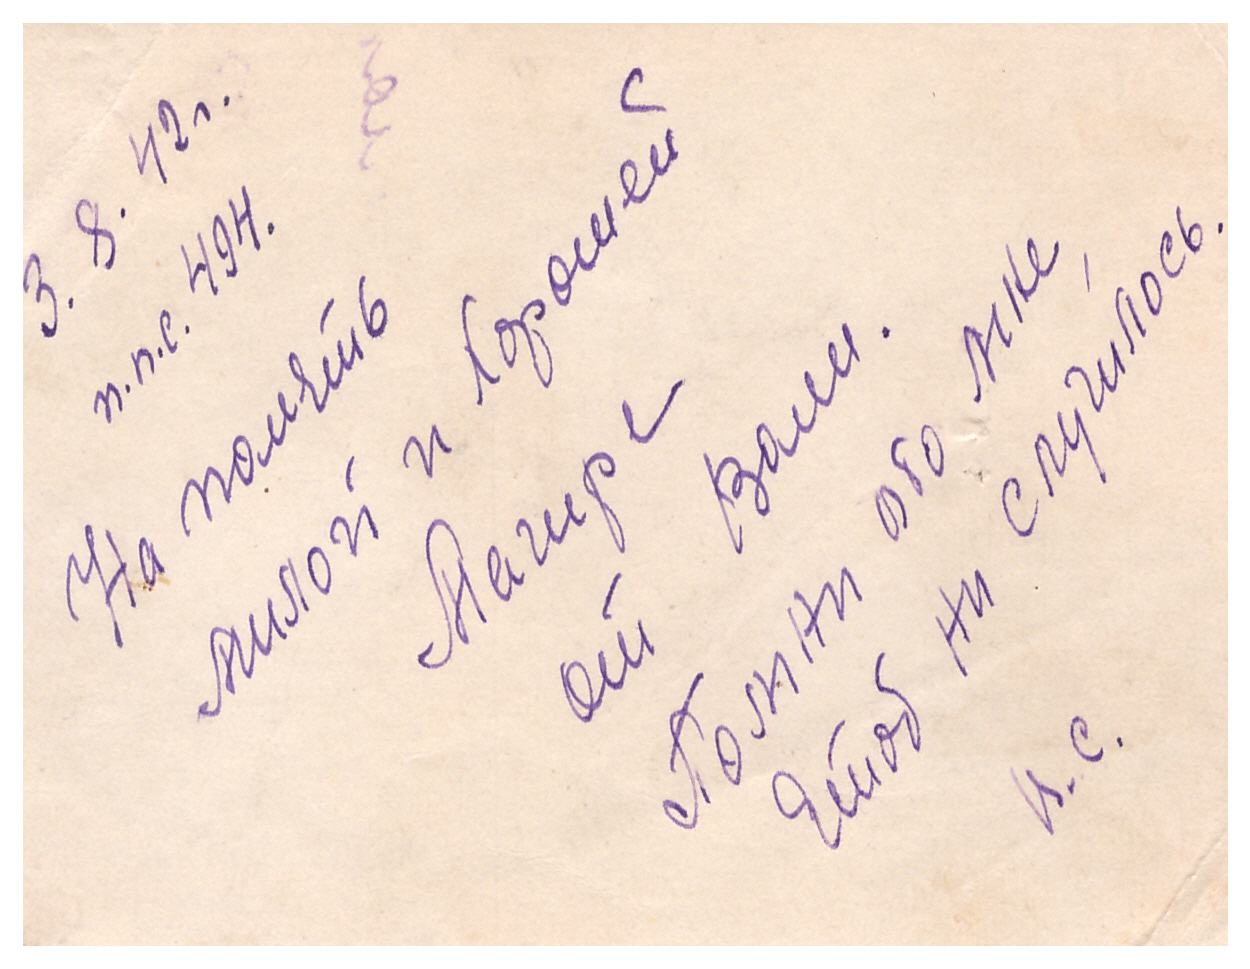 3. 8. 42г.
п.п.с. 494.
На помять
милой и Хорошей
от Вали.
Помни обо мне,
Чтоб ни случилось.